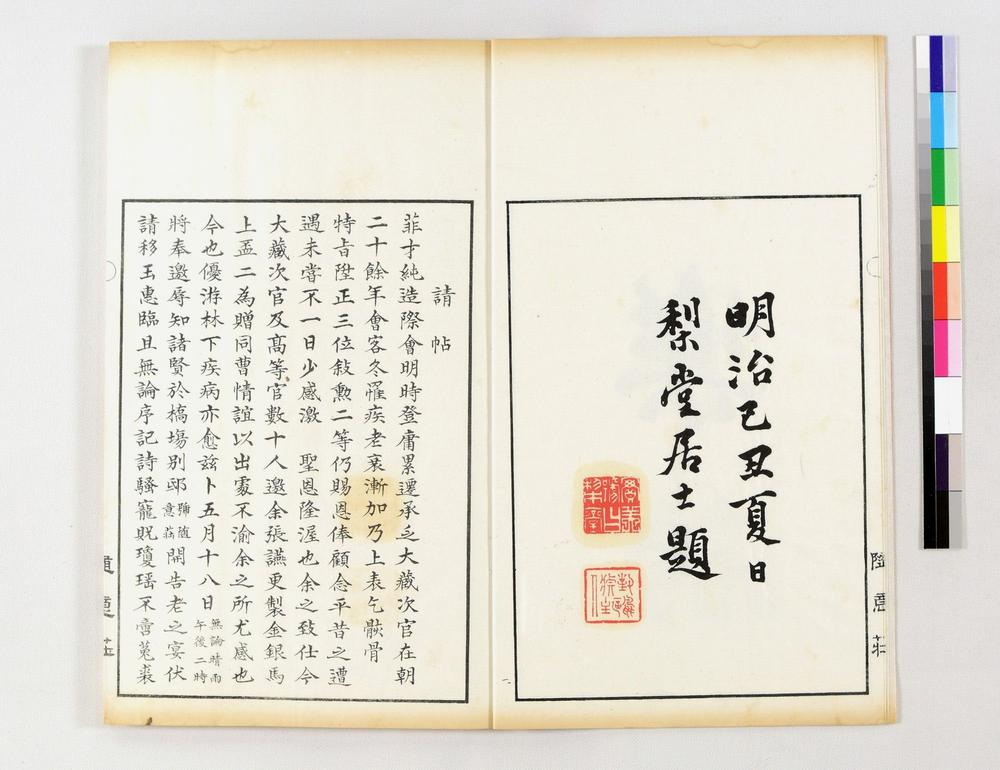 明治己丑夏日
梨堂居士題
請帖
菲才純造際會明時登庸累遷承乏大藏次官在朝
二十餘年會客冬罹疾老衰漸加乃上表乞骸骨
特旨陞正三位敍勲二等仍賜恩俸顧念平昔之遭
遇未嘗不一日少感激　聖恩隆渥也余之致仕今
大藏次官及高等官數十人邀余張讌更製金銀馬
上盃二為贈同曹情誼以出處不渝余之所尤感也
今也優游林下疾病亦愈茲卜五月十八日無論晴雨午後二時
將奉邀辱知諸賢於橋場別邸隨意莊開告老之宴伏
請移玉惠臨且無論序記詩騷寵貺瓊瑤不啻菟裘
隨意莊